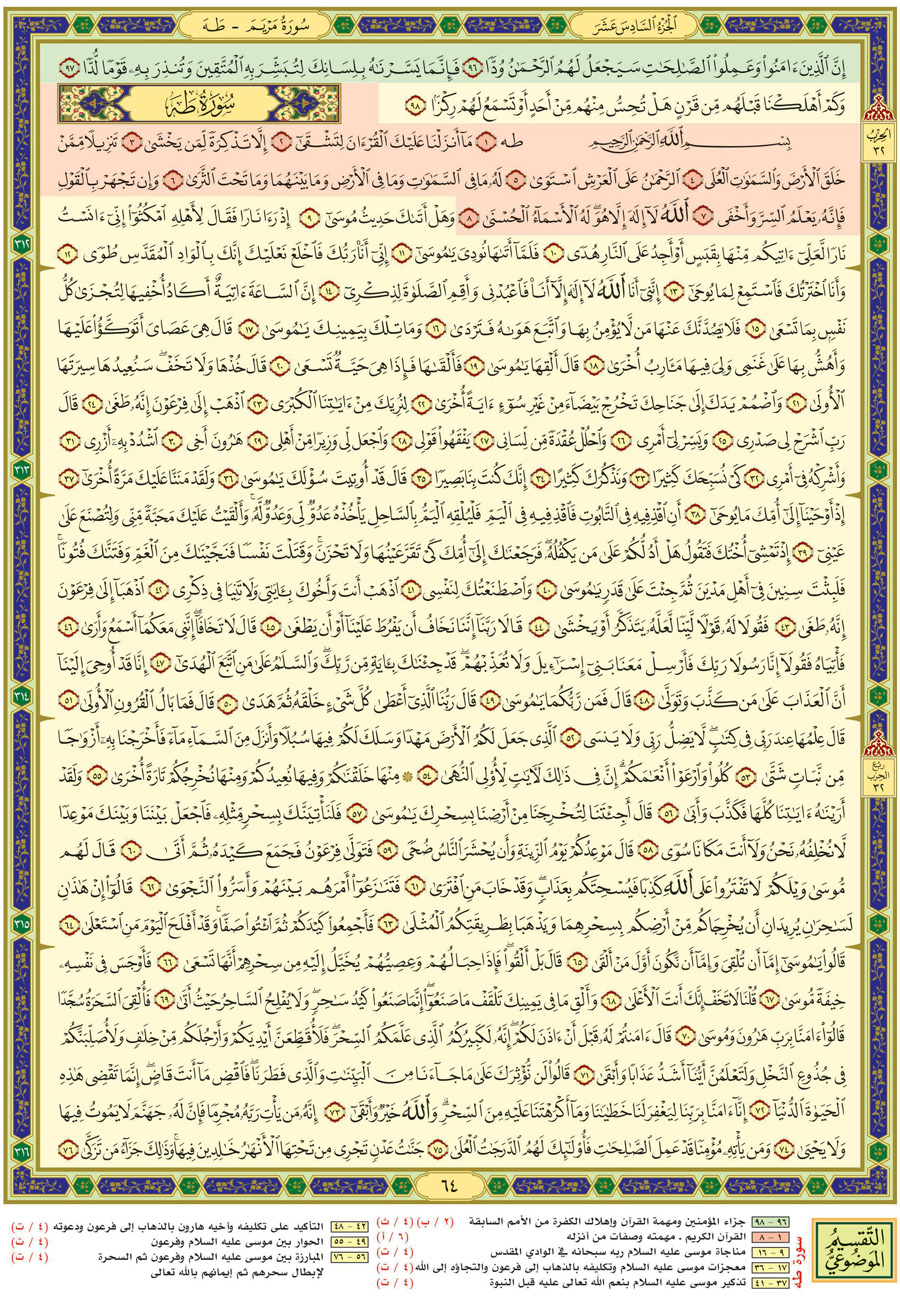 ٱلْجُزْءُ ٱلسَّادِسَ عَشَرَ
سُورَةُ مَرْيَمَ - طه
إِنَّ ٱلَّذِينَ ءَامَنُوا۟ وَعَمِلُوا۟ ٱلصَّـٰلِحَـٰتِ سَيَجْعَلُ لَهُمُ ٱلرَّحْمَـٰنُ وُدًّا ٩٦ فَإِنَّمَا يَسَّرْنَـٰهُ بِلِسَانِكَ لِتُبَشِّرَ بِهِ ٱلْمُتَّقِينَ وَتُنذِرَ بِهِۦ قَوْمًا لُّدًّا ٩٧
وَكَمْ أَهْلَكْنَا قَبْلَهُم مِّن قَرْنٍ هَلْ تُحِسُّ مِنْهُم مِّنْ أَحَدٍ أَوْ تَسْمَعُ لَهُمْ رِكْزًۢا ٩٨
سُورَةُ طه
بِسْمِ ٱللَّهِ ٱلرَّحْمَـٰنِ ٱلرَّحِيمِ طه ١ مَآ أَنزَلْنَا عَلَيْكَ ٱلْقُرْءَانَ لِتَشْقَىٰٓ ٢ إِلَّا تَذْكِرَةً لِّمَن يَخْشَىٰ ٣ تَنزِيلًا مِّمَّنْ
خَلَقَ ٱلْأَرْضَ وَٱلسَّمَـٰوَٰتِ ٱلْعُلَى ٤ ٱلرَّحْمَـٰنُ عَلَى ٱلْعَرْشِ ٱسْتَوَىٰ ٥ لَهُۥ مَا فِى ٱلسَّمَـٰوَٰتِ وَمَا فِى ٱلْأَرْضِ وَمَا بَيْنَهُمَا وَمَا تَحْتَ ٱلثَّرَىٰ ٦ وَإِن تَجْهَرْ بِٱلْقَوْلِ
فَإِنَّهُۥ يَعْلَمُ ٱلسِّرَّ وَأَخْفَى ٧ ٱللَّهُ لَآ إِلَـٰهَ إِلَّا هُوَ ۖ لَهُ ٱلْأَسْمَآءُ ٱلْحُسْنَىٰ ٨ وَهَلْ أَتَىٰكَ حَدِيثُ مُوسَىٰٓ ٩ إِذْ رَءَا نَارًا فَقَالَ لِأَهْلِهِ ٱمْكُثُوٓا۟ إِنِّىٓ ءَانَسْتُ
نَارًا لَّعَلِّىٓ ءَاتِيكُم مِّنْهَا بِقَبَسٍ أَوْ أَجِدُ عَلَى ٱلنَّارِ هُدًى ١٠ فَلَمَّآ أَتَىٰهَا نُودِىَ يَـٰمُوسَىٰٓ ١١ إِنِّىٓ أَنَا۠ رَبُّكَ فَٱخْلَعْ نَعْلَيْكَ ۖ إِنَّكَ بِٱلْوَادِ ٱلْمُقَدَّسِ طُوًى ١٢
وَأَنَا ٱخْتَرْتُكَ فَٱسْتَمِعْ لِمَا يُوحَىٰٓ ١٣ إِنَّنِىٓ أَنَا ٱللَّهُ لَآ إِلَـٰهَ إِلَّآ أَنَا۠ فَٱعْبُدْنِى وَأَقِمِ ٱلصَّلَوٰةَ لِذِكْرِىٓ ١٤ إِنَّ ٱلسَّاعَةَ ءَاتِيَةٌ أَكَادُ أُخْفِيهَا لِتُجْزَىٰ كُلُّ
نَفْسٍۭ بِمَا تَسْعَىٰ ١٥ فَلَا يَصُدَّنَّكَ عَنْهَا مَن لَّا يُؤْمِنُ بِهَا وَٱتَّبَعَ هَوَىٰهُ فَتَرْدَىٰ ١٦ وَمَا تِلْكَ بِيَمِينِكَ يَـٰمُوسَىٰ ١٧ قَالَ هِىَ عَصَاىَ أَتَوَكَّؤُا۟ عَلَيْهَا
وَأَهُشُّ بِهَا عَلَىٰ غَنَمِى وَلِىَ فِيهَا مَـَٔارِبُ أُخْرَىٰ ١٨ قَالَ أَلْقِهَا يَـٰمُوسَىٰ ١٩ فَأَلْقَىٰهَا فَإِذَا هِىَ حَيَّةٌ تَسْعَىٰ ٢٠ قَالَ خُذْهَا وَلَا تَخَفْ ۖ سَنُعِيدُهَا سِيرَتَهَا
ٱلْأُولَىٰ ٢١ وَٱضْمُمْ يَدَكَ إِلَىٰ جَنَاحِكَ تَخْرُجْ بَيْضَآءَ مِنْ غَيْرِ سُوٓءٍ ءَايَةً أُخْرَىٰ ٢٢ لِنُرِيَكَ مِنْ ءَايَـٰتِنَا ٱلْكُبْرَى ٢٣ ٱذْهَبْ إِلَىٰ فِرْعَوْنَ إِنَّهُۥ طَغَىٰ ٢٤ قَالَ
رَبِّ ٱشْرَحْ لِى صَدْرِى ٢٥ وَيَسِّرْ لِىٓ أَمْرِى ٢٦ وَٱحْلُلْ عُقْدَةً مِّن لِّسَانِى ٢٧ يَفْقَهُوا۟ قَوْلِى ٢٨ وَٱجْعَل لِّى وَزِيرًا مِّنْ أَهْلِى ٢٩ هَـٰرُونَ أَخِى ٣٠ ٱشْدُدْ بِهِۦٓ أَزْرِى ٣١
وَأَشْرِكْهُ فِىٓ أَمْرِى ٣٢ كَىْ نُسَبِّحَكَ كَثِيرًا ٣٣ وَنَذْكُرَكَ كَثِيرًا ٣٤ إِنَّكَ كُنتَ بِنَا بَصِيرًا ٣٥ قَالَ قَدْ أُوتِيتَ سُؤْلَكَ يَـٰمُوسَىٰ ٣٦ وَلَقَدْ مَنَنَّا عَلَيْكَ مَرَّةً أُخْرَىٰٓ ٣٧
إِذْ أَوْحَيْنَآ إِلَىٰٓ أُمِّكَ مَا يُوحَىٰٓ ٣٨ أَنِ ٱقْذِفِيهِ فِى ٱلتَّابُوتِ فَٱقْذِفِيهِ فِى ٱلْيَمِّ فَلْيُلْقِهِ ٱلْيَمُّ بِٱلسَّاحِلِ يَأْخُذْهُ عَدُوٌّ لِّى وَعَدُوٌّ لَّهُۥ ۚ وَأَلْقَيْتُ عَلَيْكَ مَحَبَّةً مِّنِّى وَلِتُصْنَعَ عَلَىٰ
عَيْنِىٓ ٣٩ إِذْ تَمْشِىٓ أُخْتُكَ فَتَقُولُ هَلْ أَدُلُّكُمْ عَلَىٰ مَن يَكْفُلُهُۥ ۖ فَرَجَعْنَـٰكَ إِلَىٰٓ أُمِّكَ كَىْ تَقَرَّ عَيْنُهَا وَلَا تَحْزَنَ ۚ وَقَتَلْتَ نَفْسًا فَنَجَّيْنَـٰكَ مِنَ ٱلْغَمِّ وَفَتَنَّـٰكَ فُتُونًا ۚ
فَلَبِثْتَ سِنِينَ فِىٓ أَهْلِ مَدْيَنَ ثُمَّ جِئْتَ عَلَىٰ قَدَرٍ يَـٰمُوسَىٰ ٤٠ وَٱصْطَنَعْتُكَ لِنَفْسِى ٤١ ٱذْهَبْ أَنتَ وَأَخُوكَ بِـَٔايَـٰتِى وَلَا تَنِيَا فِى ذِكْرِى ٤٢ ٱذْهَبَآ إِلَىٰ فِرْعَوْنَ
إِنَّهُۥ طَغَىٰ ٤٣ فَقُولَا لَهُۥ قَوْلًا لَّيِّنًا لَّعَلَّهُۥ يَتَذَكَّرُ أَوْ يَخْشَىٰ ٤٤ قَالَا رَبَّنَآ إِنَّنَا نَخَافُ أَن يَفْرُطَ عَلَيْنَآ أَوْ أَن يَطْغَىٰ ٤٥ قَالَ لَا تَخَافَآ ۖ إِنَّنِى مَعَكُمَآ أَسْمَعُ وَأَرَىٰ ٤٦
فَأْتِيَاهُ فَقُولَآ إِنَّا رَسُولَا رَبِّكَ فَأَرْسِلْ مَعَنَا بَنِىٓ إِسْرَٰٓءِيلَ وَلَا تُعَذِّبْهُمْ ۖ قَدْ جِئْنَـٰكَ بِـَٔايَةٍ مِّن رَّبِّكَ ۖ وَٱلسَّلَـٰمُ عَلَىٰ مَنِ ٱتَّبَعَ ٱلْهُدَىٰٓ ٤٧ إِنَّا قَدْ أُوحِىَ إِلَيْنَآ
أَنَّ ٱلْعَذَابَ عَلَىٰ مَن كَذَّبَ وَتَوَلَّىٰ ٤٨ قَالَ فَمَن رَّبُّكُمَا يَـٰمُوسَىٰ ٤٩ قَالَ رَبُّنَا ٱلَّذِىٓ أَعْطَىٰ كُلَّ شَىْءٍ خَلْقَهُۥ ثُمَّ هَدَىٰ ٥٠ قَالَ فَمَا بَالُ ٱلْقُرُونِ ٱلْأُولَىٰ ٥١
قَالَ عِلْمُهَا عِندَ رَبِّى فِى كِتَـٰبٍ ۖ لَّا يَضِلُّ رَبِّى وَلَا يَنسَى ٥٢ ٱلَّذِى جَعَلَ لَكُمُ ٱلْأَرْضَ مَهْدًا وَسَلَكَ لَكُمْ فِيهَا سُبُلًا وَأَنزَلَ مِنَ ٱلسَّمَآءِ مَآءً فَأَخْرَجْنَا بِهِۦٓ أَزْوَٰجًا
مِّن نَّبَاتٍ شَتَّىٰ ٥٣ كُلُوا۟ وَٱرْعَوْا۟ أَنْعَـٰمَكُمْ ۗ إِنَّ فِى ذَٰلِكَ لَـَٔايَـٰتٍ لِّأُو۟لِى ٱلنُّهَىٰ ٥٤ ۞ مِنْهَا خَلَقْنَـٰكُمْ وَفِيهَا نُعِيدُكُمْ وَمِنْهَا نُخْرِجُكُمْ تَارَةً أُخْرَىٰ ٥٥ وَلَقَدْ
أَرَيْنَـٰهُ ءَايَـٰتِنَا كُلَّهَا فَكَذَّبَ وَأَبَىٰ ٥٦ قَالَ أَجِئْتَنَا لِتُخْرِجَنَا مِنْ أَرْضِنَا بِسِحْرِكَ يَـٰمُوسَىٰ ٥٧ فَلَنَأْتِيَنَّكَ بِسِحْرٍ مِّثْلِهِۦ فَٱجْعَلْ بَيْنَنَا وَبَيْنَكَ مَوْعِدًا
لَّا نُخْلِفُهُۥ نَحْنُ وَلَآ أَنتَ مَكَانًا سُوًى ٥٨ قَالَ مَوْعِدُكُمْ يَوْمُ ٱلزِّينَةِ وَأَن يُحْشَرَ ٱلنَّاسُ ضُحًى ٥٩ فَتَوَلَّىٰ فِرْعَوْنُ فَجَمَعَ كَيْدَهُۥ ثُمَّ أَتَىٰ ٦٠ قَالَ لَهُم
مُّوسَىٰ وَيْلَكُمْ لَا تَفْتَرُوا۟ عَلَى ٱللَّهِ كَذِبًا فَيُسْحِتَكُم بِعَذَابٍ ۖ وَقَدْ خَابَ مَنِ ٱفْتَرَىٰ ٦١ فَتَنَـٰزَعُوٓا۟ أَمْرَهُم بَيْنَهُمْ وَأَسَرُّوا۟ ٱلنَّجْوَىٰ ٦٢ قَالُوٓا۟ إِنْ هَـٰذَٰنِ
لَسَـٰحِرَٰنِ يُرِيدَانِ أَن يُخْرِجَاكُم مِّنْ أَرْضِكُم بِسِحْرِهِمَا وَيَذْهَبَا بِطَرِيقَتِكُمُ ٱلْمُثْلَىٰ ٦٣ فَأَجْمِعُوا۟ كَيْدَكُمْ ثُمَّ ٱئْتُوا۟ صَفًّا ۚ وَقَدْ أَفْلَحَ ٱلْيَوْمَ مَنِ ٱسْتَعْلَىٰ ٦٤
قَالُوا۟ يَـٰمُوسَىٰٓ إِمَّآ أَن تُلْقِىَ وَإِمَّآ أَن نَّكُونَ أَوَّلَ مَنْ أَلْقَىٰ ٦٥ قَالَ بَلْ أَلْقُوا۟ ۖ فَإِذَا حِبَالُهُمْ وَعِصِيُّهُمْ يُخَيَّلُ إِلَيْهِ مِن سِحْرِهِمْ أَنَّهَا تَسْعَىٰ ٦٦ فَأَوْجَسَ فِى نَفْسِهِۦ
خِيفَةً مُّوسَىٰ ٦٧ قُلْنَا لَا تَخَفْ إِنَّكَ أَنتَ ٱلْأَعْلَىٰ ٦٨ وَأَلْقِ مَا فِى يَمِينِكَ تَلْقَفْ مَا صَنَعُوٓا۟ ۖ إِنَّمَا صَنَعُوا۟ كَيْدُ سَـٰحِرٍ ۖ وَلَا يُفْلِحُ ٱلسَّاحِرُ حَيْثُ أَتَىٰ ٦٩ فَأُلْقِىَ ٱلسَّحَرَةُ سُجَّدًا
قَالُوٓا۟ ءَامَنَّا بِرَبِّ هَـٰرُونَ وَمُوسَىٰ ٧٠ قَالَ ءَامَنتُمْ لَهُۥ قَبْلَ أَنْ ءَاذَنَ لَكُمْ ۖ إِنَّهُۥ لَكَبِيرُكُمُ ٱلَّذِى عَلَّمَكُمُ ٱلسِّحْرَ ۖ فَلَأُقَطِّعَنَّ أَيْدِيَكُمْ وَأَرْجُلَكُم مِّنْ خِلَـٰفٍ وَلَأُصَلِّبَنَّكُمْ
فِى جُذُوعِ ٱلنَّخْلِ وَلَتَعْلَمُنَّ أَيُّنَآ أَشَدُّ عَذَابًا وَأَبْقَىٰ ٧١ قَالُوا۟ لَن نُّؤْثِرَكَ عَلَىٰ مَا جَآءَنَا مِنَ ٱلْبَيِّنَـٰتِ وَٱلَّذِى فَطَرَنَا ۖ فَٱقْضِ مَآ أَنتَ قَاضٍ ۖ إِنَّمَا تَقْضِى هَـٰذِهِ
ٱلْحَيَوٰةَ ٱلدُّنْيَآ ٧٢ إِنَّآ ءَامَنَّا بِرَبِّنَا لِيَغْفِرَ لَنَا خَطَـٰيَـٰنَا وَمَآ أَكْرَهْتَنَا عَلَيْهِ مِنَ ٱلسِّحْرِ ۗ وَٱللَّهُ خَيْرٌ وَأَبْقَىٰٓ ٧٣ إِنَّهُۥ مَن يَأْتِ رَبَّهُۥ مُجْرِمًا فَإِنَّ لَهُۥ جَهَنَّمَ لَا يَمُوتُ فِيهَا
وَلَا يَحْيَىٰ ٧٤ وَمَن يَأْتِهِۦ مُؤْمِنًا قَدْ عَمِلَ ٱلصَّـٰلِحَـٰتِ فَأُو۟لَـٰٓئِكَ لَهُمُ ٱلدَّرَجَـٰتُ ٱلْعُلَىٰ ٧٥ جَنَّـٰتُ عَدْنٍ تَجْرِى مِن تَحْتِهَا ٱلْأَنْهَـٰرُ خَـٰلِدِينَ فِيهَا ۚ وَذَٰلِكَ جَزَآءُ مَن تَزَكَّىٰ ٧٦
الحزب
٣٢
ربع
الحزب
٣٢
٣١٢
٣١٣
٣١٤
٣١٥
٣١٦
٦٤
التقسيم
الموضوعي
٩٦ - ٩٨ جزاء المؤمنين ومهمة القرآن وإهلاك الكفرة من الأمم السابقة (٢ / ب) (٤ / ث)
سورة طه
١ - ٨ القرآن الكريم . مهمته وصفات من أنزله (٦ / أ)
٩ - ١٦ مناجاة موسى عليه السلام ربه سبحانه في الوادي المقدس (٤ / ت)
١٧ - ٣٦ معجزات موسى عليه السلام وتكليفه بالذهاب إلى فرعون والتجاؤه إلى الله (٤ / ت)
٣٧ - ٤١ تذكير موسى عليه السلام بنعم الله تعالى عليه قبل النبوة (٤ / ت)
٤٢ - ٤٨ التأكيد على تكليفه وأخيه هارون بالذهاب إلى فرعون ودعوته (٤ / ت)
٤٩ - ٥٥ الحوار بين موسى عليه السلام وفرعون (٤ / ت)
٥٦ - ٧٦ المبارزة بين موسى عليه السلام وفرعون ثم السحرة (٤ / ت)
لإبطال سحرهم ثم إيمانهم بالله تعالى